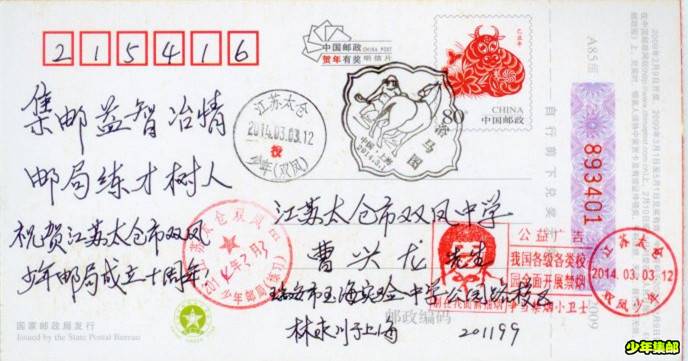 215416
中国邮政 CHINA POST
贺年有奖 明信片
己丑年
80
CHINA
中国邮政
A85组
893401
自行剪下兑奖
2009
江苏太仓
2014.03.03.12
投
少年(双凤)
浴马图
集邮益智冶情
邮局练才树人
祝贺江苏太仓市双凤
少年邮局成立十周年!
江苏太仓市双凤中学
曹兴龙 先生
瑞安市玉海实验中学公园路校区
林永川于上海
201199
邮政编码
公益广告
我国各级各类校
园全面开展禁烟
争当禁烟小卫士
江苏太仓
2014.03.03.12
双凤少年
国家邮政局发行
Issued by the State Postal Bureau
少年集邮